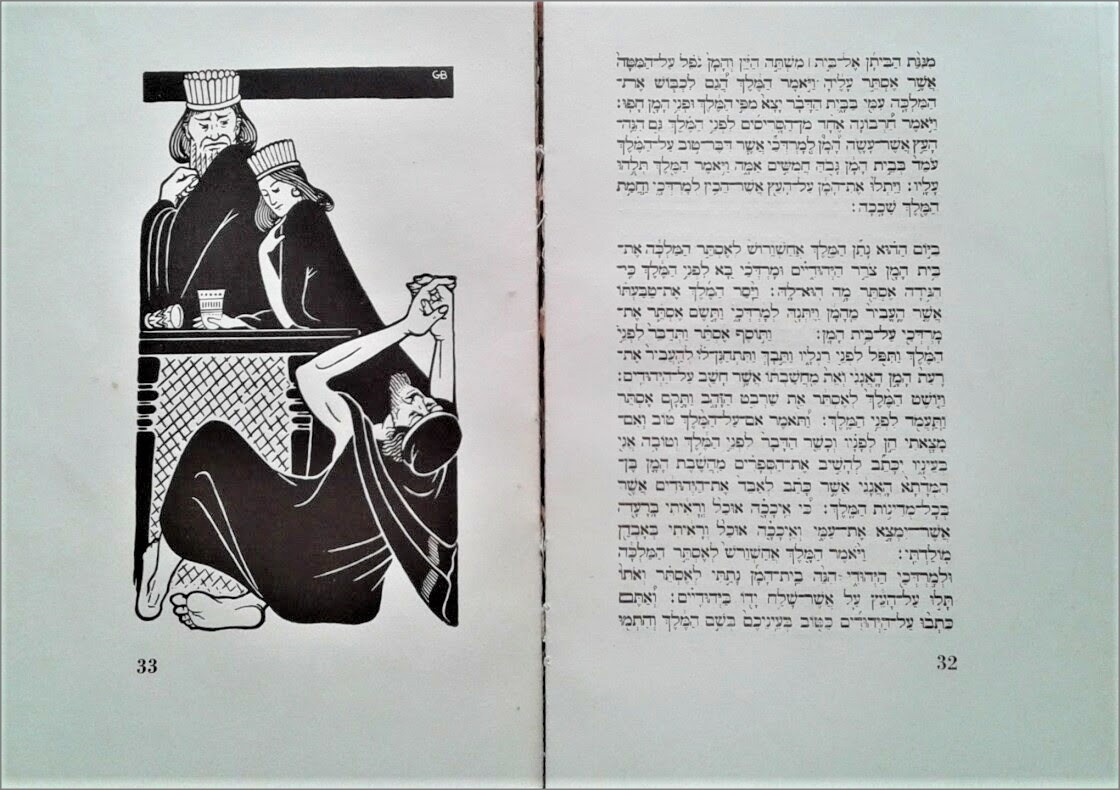 מִגִּנַּת הַבִּיתָן אֶל־בֵּית ׀ מִשְׁתֵּה הַיַּיִן וְהָמָן נֹפֵל עַל־הַמִּטָּה
אֲשֶׁר אֶסְתֵּר עָלֶיהָ וַיֹּאמֶר הַמֶּלֶךְ הֲגַם לִכְבּוֹשׁ אֶת־
הַמַּלְכָּה עִמִּי בַּבָּיִת הַדָּבָר יָצָא מִפִּי הַמֶּלֶךְ וּפְנֵי הָמָן חָפוּ׃
וַיֹּאמֶר חַרְבוֹנָה אֶחָד מִן־הַסָּרִיסִים לִפְנֵי הַמֶּלֶךְ גַּם הִנֵּה־
הָעֵץ אֲשֶׁר־עָשָׂה הָמָן לְמָרְדֳּכַי אֲשֶׁר דִּבֶּר־טוֹב עַל־הַמֶּלֶךְ
עֹמֵד בְּבֵית הָמָן גָּבֹהַּ חֲמִשִּׁים אַמָּה וַיֹּאמֶר הַמֶּלֶךְ תְּלֻהוּ
עָלָיו׃ וַיִּתְלוּ אֶת־הָמָן עַל־הָעֵץ אֲשֶׁר־הֵכִין לְמָרְדֳּכָי וַחֲמַת
הַמֶּלֶךְ שָׁכָכָה׃
בַּיּוֹם הַהוּא נָתַן הַמֶּלֶךְ אֲחַשְׁוֵרוֹשׁ לְאֶסְתֵּר הַמַּלְכָּה אֶת־
בֵּית הָמָן צֹרֵר הַיְּהוּדִיִּים וּמָרְדֳּכַי בָּא לִפְנֵי הַמֶּלֶךְ כִּי־
הִגִּידָה אֶסְתֵּר מָה הוּא־לָהּ׃ וַיָּסַר הַמֶּלֶךְ אֶת־טַבַּעְתּוֹ
אֲשֶׁר הֶעֱבִיר מֵהָמָן וַיִּתְּנָהּ לְמָרְדֳּכָי וַתָּשֶׂם אֶסְתֵּר אֶת־
מָרְדֳּכַי עַל־בֵּית הָמָן׃ וַתּוֹסֶף אֶסְתֵּר וַתְּדַבֵּר לִפְנֵי
הַמֶּלֶךְ וַתִּפֹּל לִפְנֵי רַגְלָיו וַתֵּבְךְּ וַתִּתְחַנֶּן־לוֹ לְהַעֲבִיר אֶת־
רָעַת הָמָן הָאֲגָגִי וְאֵת מַחֲשַׁבְתּוֹ אֲשֶׁר חָשַׁב עַל־הַיְּהוּדִים׃
וַיּוֹשֶׁט הַמֶּלֶךְ לְאֶסְתֵּר אֵת שַׁרְבִט הַזָּהָב וַתָּקָם אֶסְתֵּר
וַתַּעֲמֹד לִפְנֵי הַמֶּלֶךְ׃ וַתֹּאמֶר אִם־עַל־הַמֶּלֶךְ טוֹב וְאִם־
מָצָאתִי חֵן לְפָנָיו וְכָשֵׁר הַדָּבָר לִפְנֵי הַמֶּלֶךְ וְטוֹבָה אֲנִי
בְּעֵינָיו יִכָּתֵב לְהָשִׁיב אֶת־הַסְּפָרִים מַחֲשֶׁבֶת הָמָן בֶּן־
הַמְּדָתָא הָאֲגָגִי אֲשֶׁר כָּתַב לְאַבֵּד אֶת־הַיְּהוּדִים אֲשֶׁר
בְּכָל־מְדִינוֹת הַמֶּלֶךְ׃ כִּי אֵיכָכָה אוּכַל וְרָאִיתִי בָּרָעָה
אֲשֶׁר־יִמְצָא אֶת־עַמִּי וְאֵיכָכָה אוּכַל וְרָאִיתִי בְּאָבְדַן
מוֹלַדְתִּי׃ וַיֹּאמֶר הַמֶּלֶךְ אֲחַשְׁוֵרֹשׁ לְאֶסְתֵּר הַמַּלְכָּה
וּלְמָרְדֳּכַי הַיְּהוּדִי הִנֵּה בֵית־הָמָן נָתַתִּי לְאֶסְתֵּר וְאֹתוֹ
תָּלוּ עַל־הָעֵץ עַל אֲשֶׁר־שָׁלַח יָדוֹ בַּיְּהוּדִיִּים׃ וְאַתֶּם
כִּתְבוּ עַל־הַיְּהוּדִים כַּטּוֹב בְּעֵינֵיכֶם בְּשֵׁם הַמֶּלֶךְ וְחִתְמוּ
32
GB
33